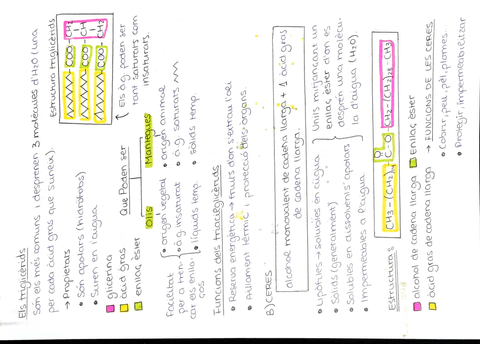 Els triglicèrids
són els més comuns i desprenen 3 molècules d'H2O (una
per cada àcid gras que s'uneix).
→ Propietats
• Són apolars
• Suren en l'aigua.
Estructura triglicèrids
COO-CH2
COO-CH
COO-CH2
glicerina
àcid gras
enllaç èster
Els à.g. poden ser
tant saturats com
insaturats.
Que Poden ser
Olis
Mantegues
Facilitat
per a tren-
car els enlla-
ços
• origen vegetal
• à.g insaturat
• líquids temp.
• origen animal
• à.g saturats
• sòlids temp.
Funcions dels triacilglicèrids
• Reserva energètica → fruits d'on s'extrau l'oli
• Aïllament tèrmic i protecció dels òrgans.
B) CERES
alcohol monovalent de cadena llarga + 1 àcid gras
de cadena llarga.
Units mitjançant un
enllaç èster d'on es
desprén una molècu-
la d'aigua (H2O).
• Sòlids (generalment)
• Solubles en dissolvents apolars
• Impermeables a l'aigua.
Estructura
alcohol de cadena llarga
Enllaç èster
àcid gras de cadena llarga
→ FUNCIONS DE LES CERES
• Cobrir, peu, pèl, plomes.
• Protegir, impermeabilitzar